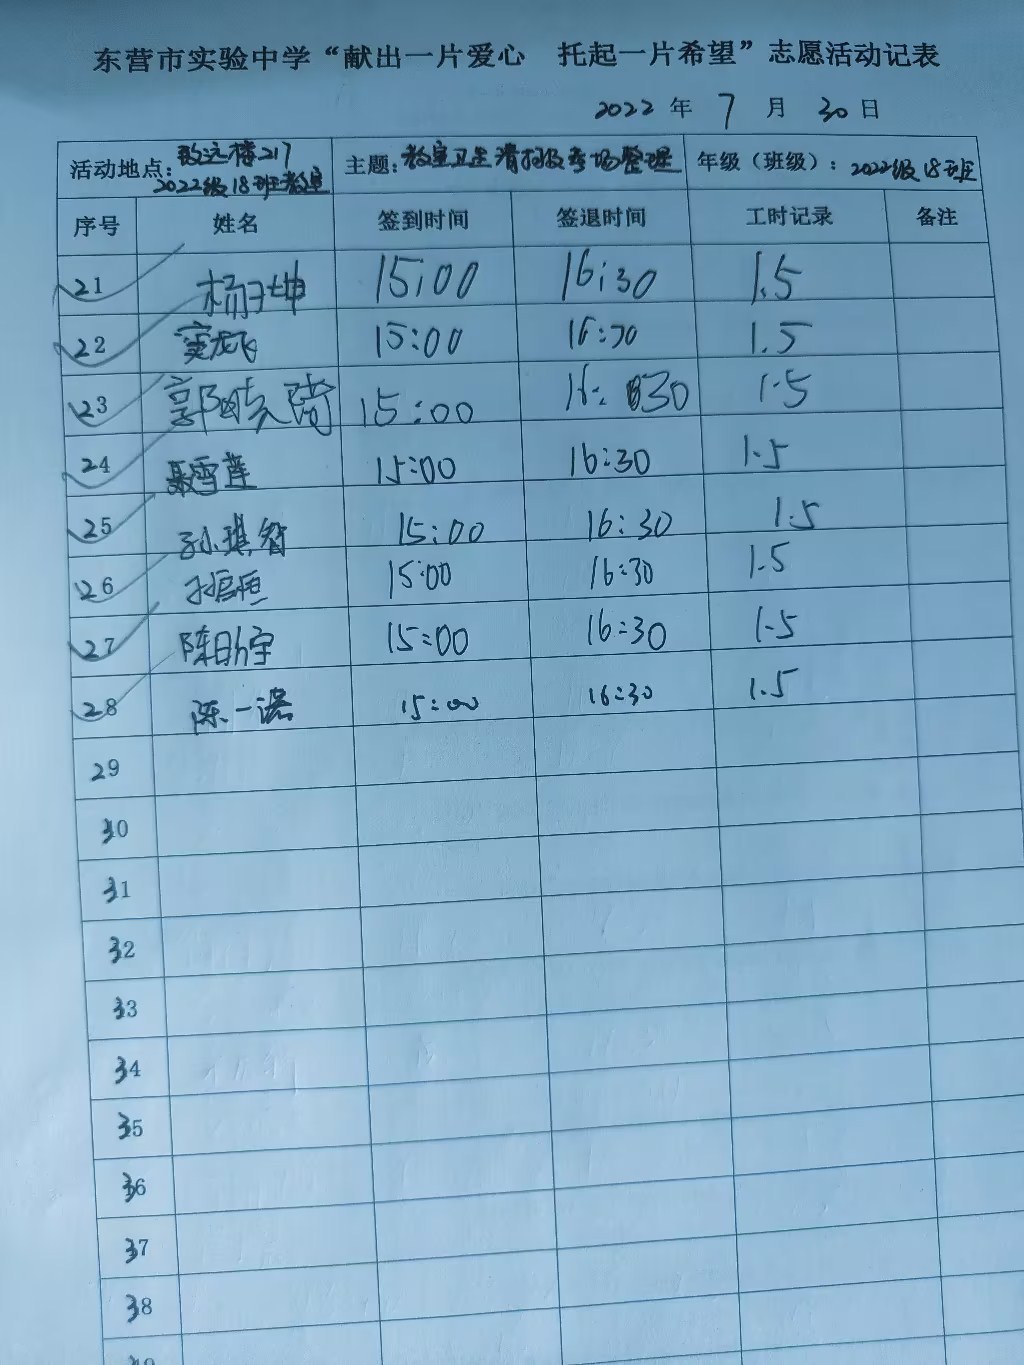 东营市实验中学“献出一片爱心 托起一片希望”志愿活动记表
2022 年 7 月 30 日
活动地点: 致远楼217 2022级18班教室 主题: 教室卫生清扫及考场整理 年级（班级）: 2022级18班
序号 姓名 签到时间 签退时间 工时记录 备注
21 杨子坤 15:00 16:30 1.5
22 窦龙飞 15:00 16:30 1.5
23 郭晓 15:00 16:30 1.5
24 聂雪莲 15:00 16:30 1.5
25 孙琪智 15:00 16:30 1.5
26 15:00 16:30 1.5
27 陈昕宇 15:00 16:30 1.5
28 陈一诺 15:00 16:30 1.5
29
30
31
32
33
34
35
36
37
38